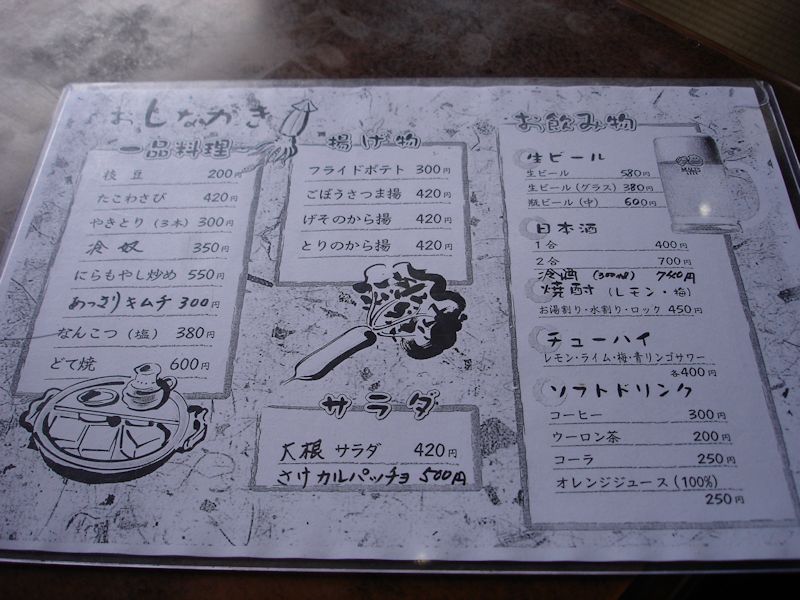 おしながき
一品料理
枝豆 200円
たこわさび 420円
やきとり (3本) 300円
冷奴 350円
にらもやし炒め 550円
あっさりキムチ 300円
なんこつ (塩) 380円
どて焼 600円
揚げ物
フライドポテト 300円
ごぼうさつま揚 420円
げそのから揚 420円
とりのから揚 420円
サラダ
大根サラダ 420円
さけカルパッチョ 500円
お飲み物
生ビール
生ビール 580円
生ビール (グラス) 380円
瓶ビール (中) 600円
日本酒
1合 400円
2合 700円
冷酒 (300ml) 740円
焼酎 (レモン・梅)
お湯割り・水割り・ロック 450円
チューハイ
レモン・ライム・梅・青リンゴサワー
各400円
ソフトドリンク
コーヒー 300円
ウーロン茶 200円
コーラ 250円
オレンジジュース (100%)
250円